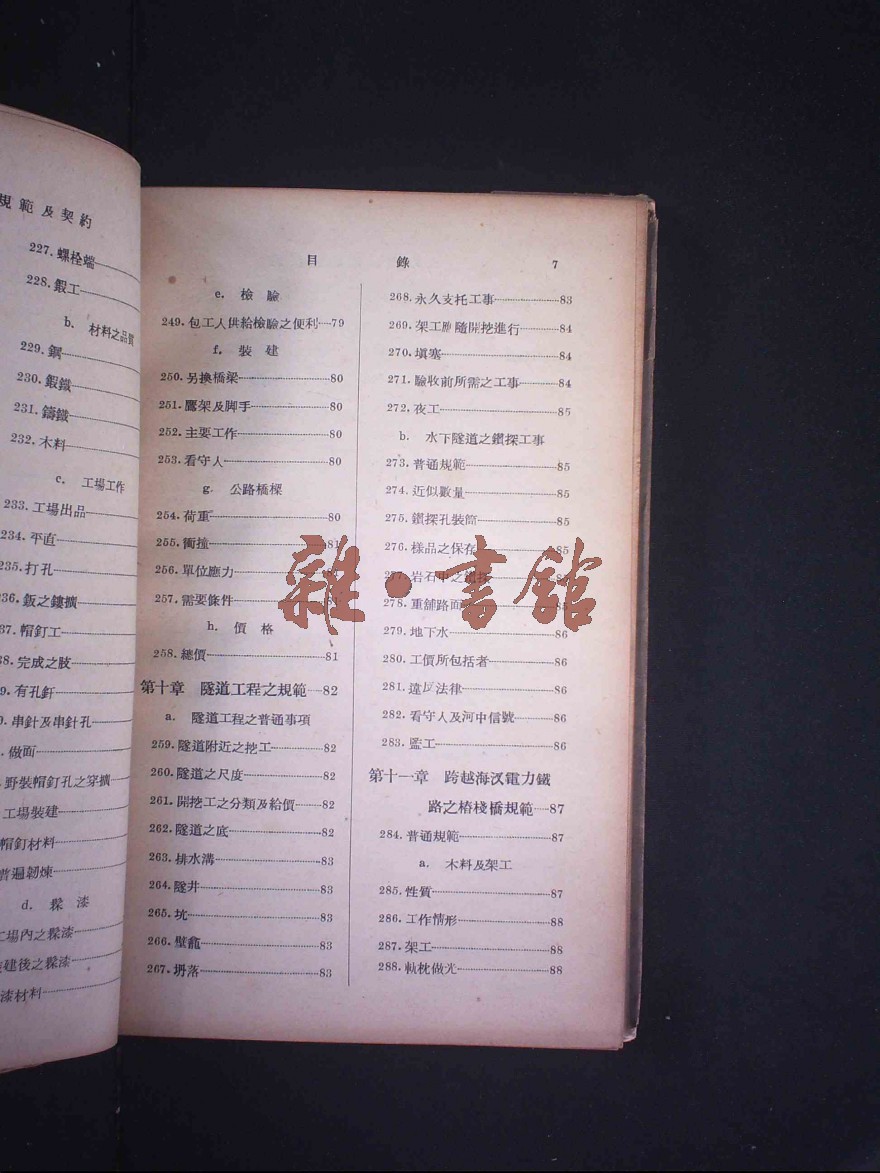 規範及契約
227.螺栓端
228.鍛工
b. 材料之品質
229.鋼
230.鍛鐵
231.鑄鐵
232.木料
c. 工場工作
233.工場出品
234.平直
235.打孔
236.鈑之鏤擴
237.帽釘工
238.完成之肢
有孔釬
串針及串針孔
做面
野裝帽釘孔之穿擴
工場裝建
帽釘材料
普遍韌煉
d. 髹漆
工場內之髹漆
建後之髹漆
漆材料
目 錄 7
e. 檢驗
249.包工人供給檢驗之便利 79
f. 裝建
250.另換橋梁 80
251.鷹架及脚手 80
252.主要工作 80
253.看守人 80
g. 公路橋樑
254.荷重 80
255.衝撞 81
256.單位應力
257.需要條件
h. 價格
258.總價 81
第十章 隧道工程之規範 82
a. 隧道工程之普通事項
259.隧道附近之挖工 82
260.隧道之尺度 82
261.開挖工之分類及給價 82
262.隧道之底 82
263.排水溝 83
264.隧井 83
265.坑 83
266.壁龕 83
267.坍落 83
268.永久支托工事 83
269.架工跴隨開挖進行 84
270.塡塞 84
271.驗收前所需之工事 84
272.夜工 85
b. 水下隧道之鑽探工事
273.普通規範 85
274.近似數量 85
275.鑽探孔裝筒 85
276.樣品之保存 85
277.岩石中之鑽探
278.重舖路面
279.地下水 86
280.工價所包括者 86
281.違反法律 86
282.看守人及河中信號 86
283.監工 86
第十一章 跨越海汊電力鐵
路之樁棧橋規範 87
284.普通規範 87
a. 木料及架工
285.性質 87
286.工作情形 88
287.架工 88
288.軌枕做光 88
雜·書館